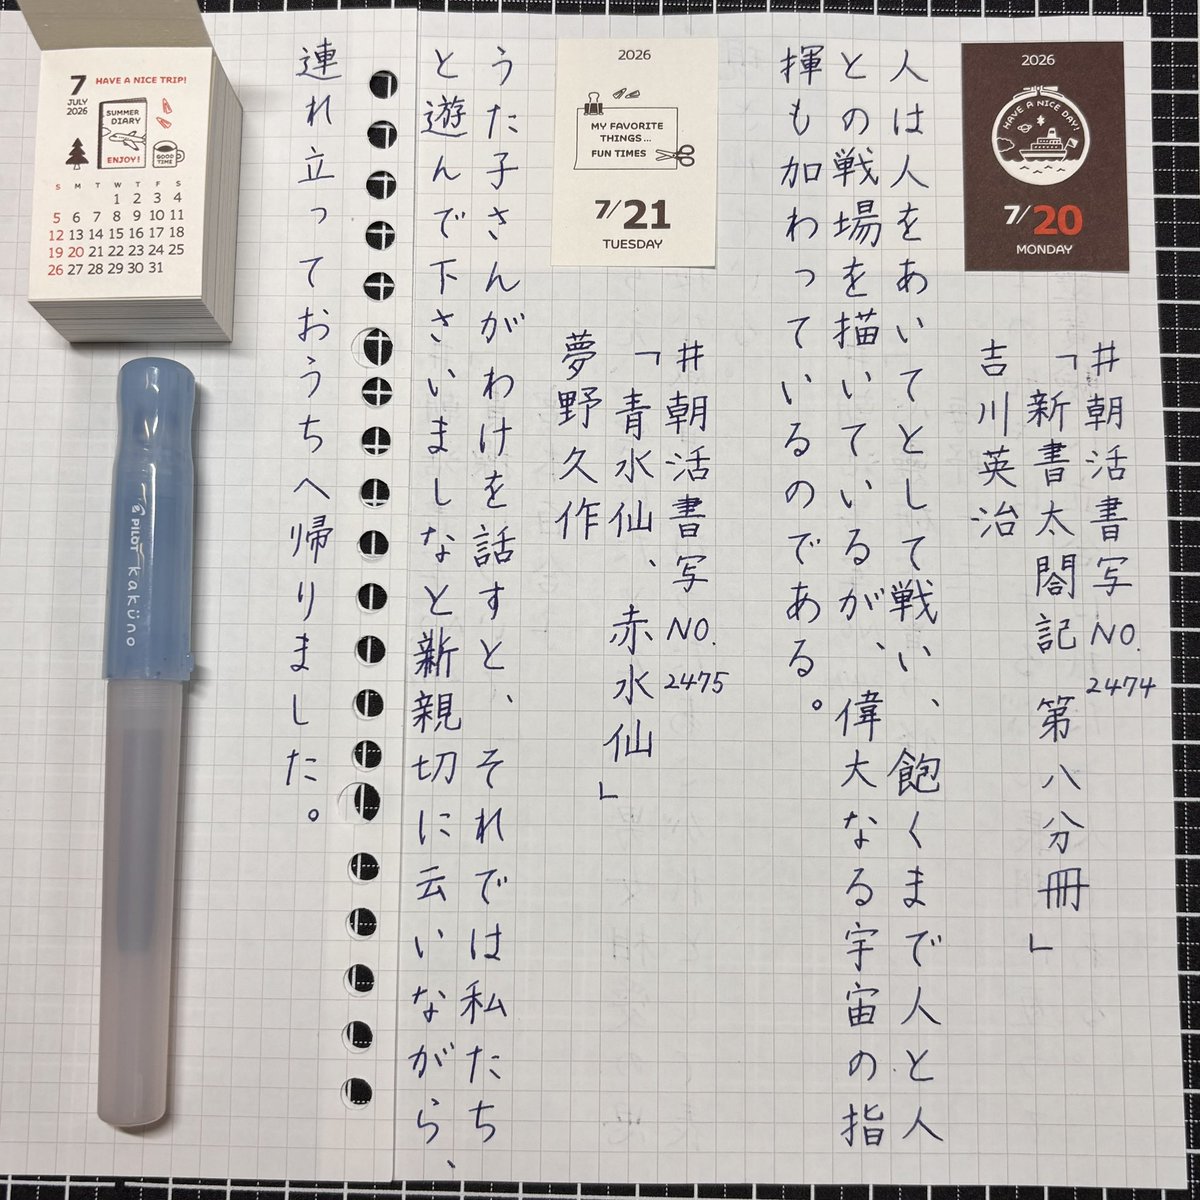 2026
HAVE A NICE DAY!
7/20
MONDAY
#朝活書写 NO. 2474
「新書太閤記 第八分冊」
吉川英治
人は人をあいてとして戦い、飽くまで人と人
との戦場を描いているが、偉大なる宇宙の指
揮も加わっているのである。
2026
MY FAVORITE
THINGS...
FUN TIMES
7/21
TUESDAY
#朝活書写 NO. 2475
「青水仙、赤水仙」
夢野久作
うた子さんがわけを話すと、それでは私たち
と遊んで下さいましなと新親切に云いながら、
連れ立っておうちへ帰りました。
7
JULY
2026
HAVE A NICE TRIP!
SUMMER
DIARY
ENJOY!
GOOD
TIME
S M T W T F S
1 2 3 4
5 6 7 8 9 10 11
12 13 14 15 16 17 18
19 20 21 22 23 24 25
26 27 28 29 30 31
PILOT kaküno